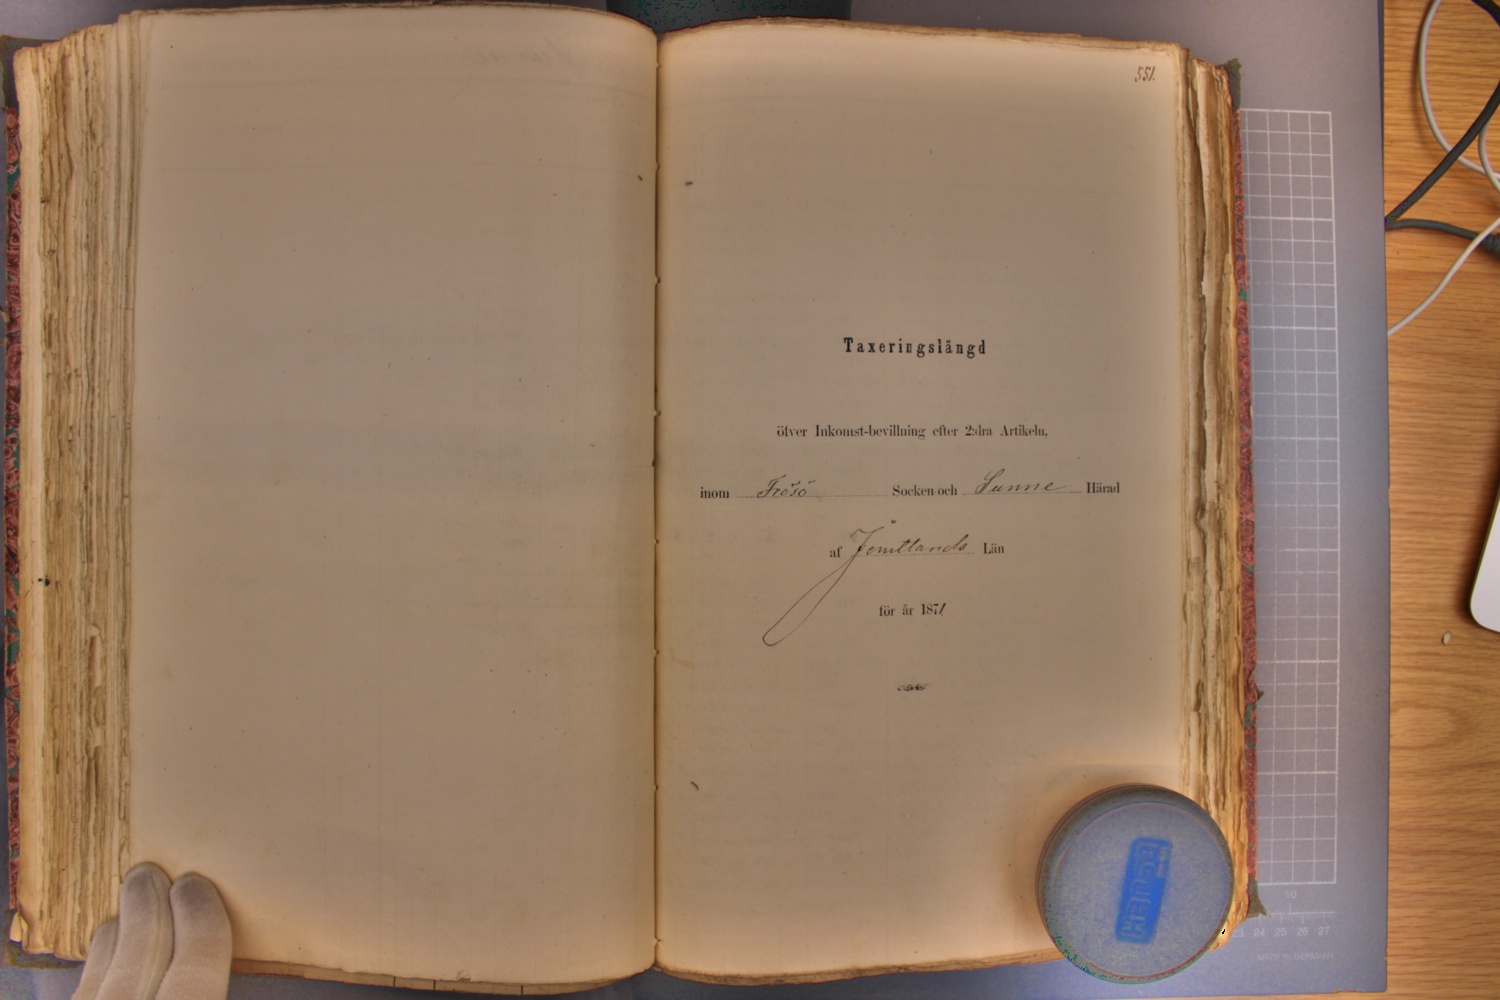 551.
Taxeringslängd
öfver Inkomst-bevillning efter 2:dra Artikeln,
inom Frösö Socken och Sunne Härad
af Jemtlands Län
för år 1871
10
23 24 25 26 27
MADE IN GERMANY